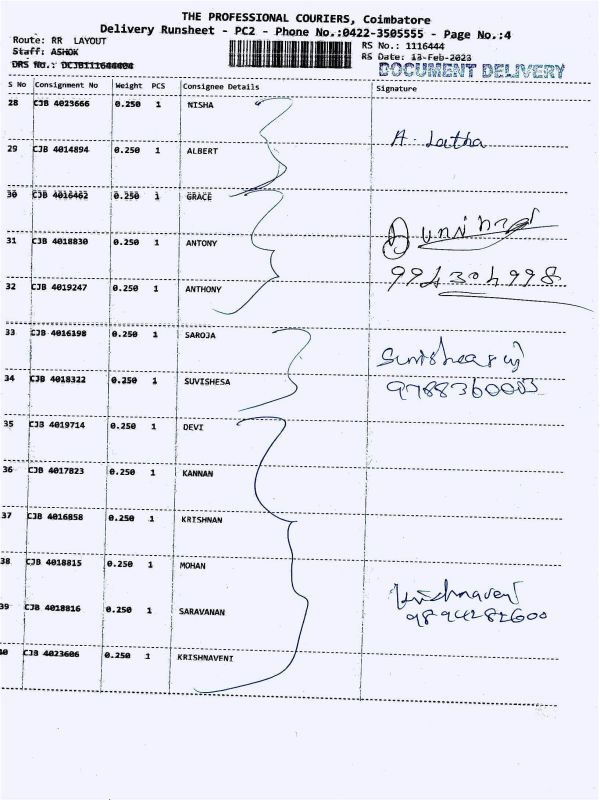 THE PROFESSIONAL COURIERS, Coimbatore
Delivery Runsheet - PC2 - Phone No.:0422-3505555 - Page No.:4
Route: RR LAYOUT
RS No.: 1116444
Staff: ASHOK
RS Date: 13-Feb-2023
DRS No.: DCJB111644404
DOCUMENT DELIVERY
S No Consignment No Weight PCS Consignee Details Signature
28 CJB 4023666 0.250 1 NISHA
A. Latha
29 CJB 4014894 0.250 1 ALBERT
30 CJB 4016462 0.250 1 GRACE
31 CJB 4018830 0.250 1 ANTONY
32 CJB 4019247 0.250 1 ANTHONY
33 CJB 4016198 0.250 1 SAROJA
34 CJB 4018322 0.250 1 SUVISHESA
35 CJB 4019714 0.250 1 DEVI
36 CJB 4017823 0.250 1 KANNAN
37 CJB 4016858 0.250 1 KRISHNAN
38 CJB 4018815 0.250 1 MOHAN
Krishnaveni
39 CJB 4018816 0.250 1 SARAVANAN
40 CJB 4023606 0.250 1 KRISHNAVENI